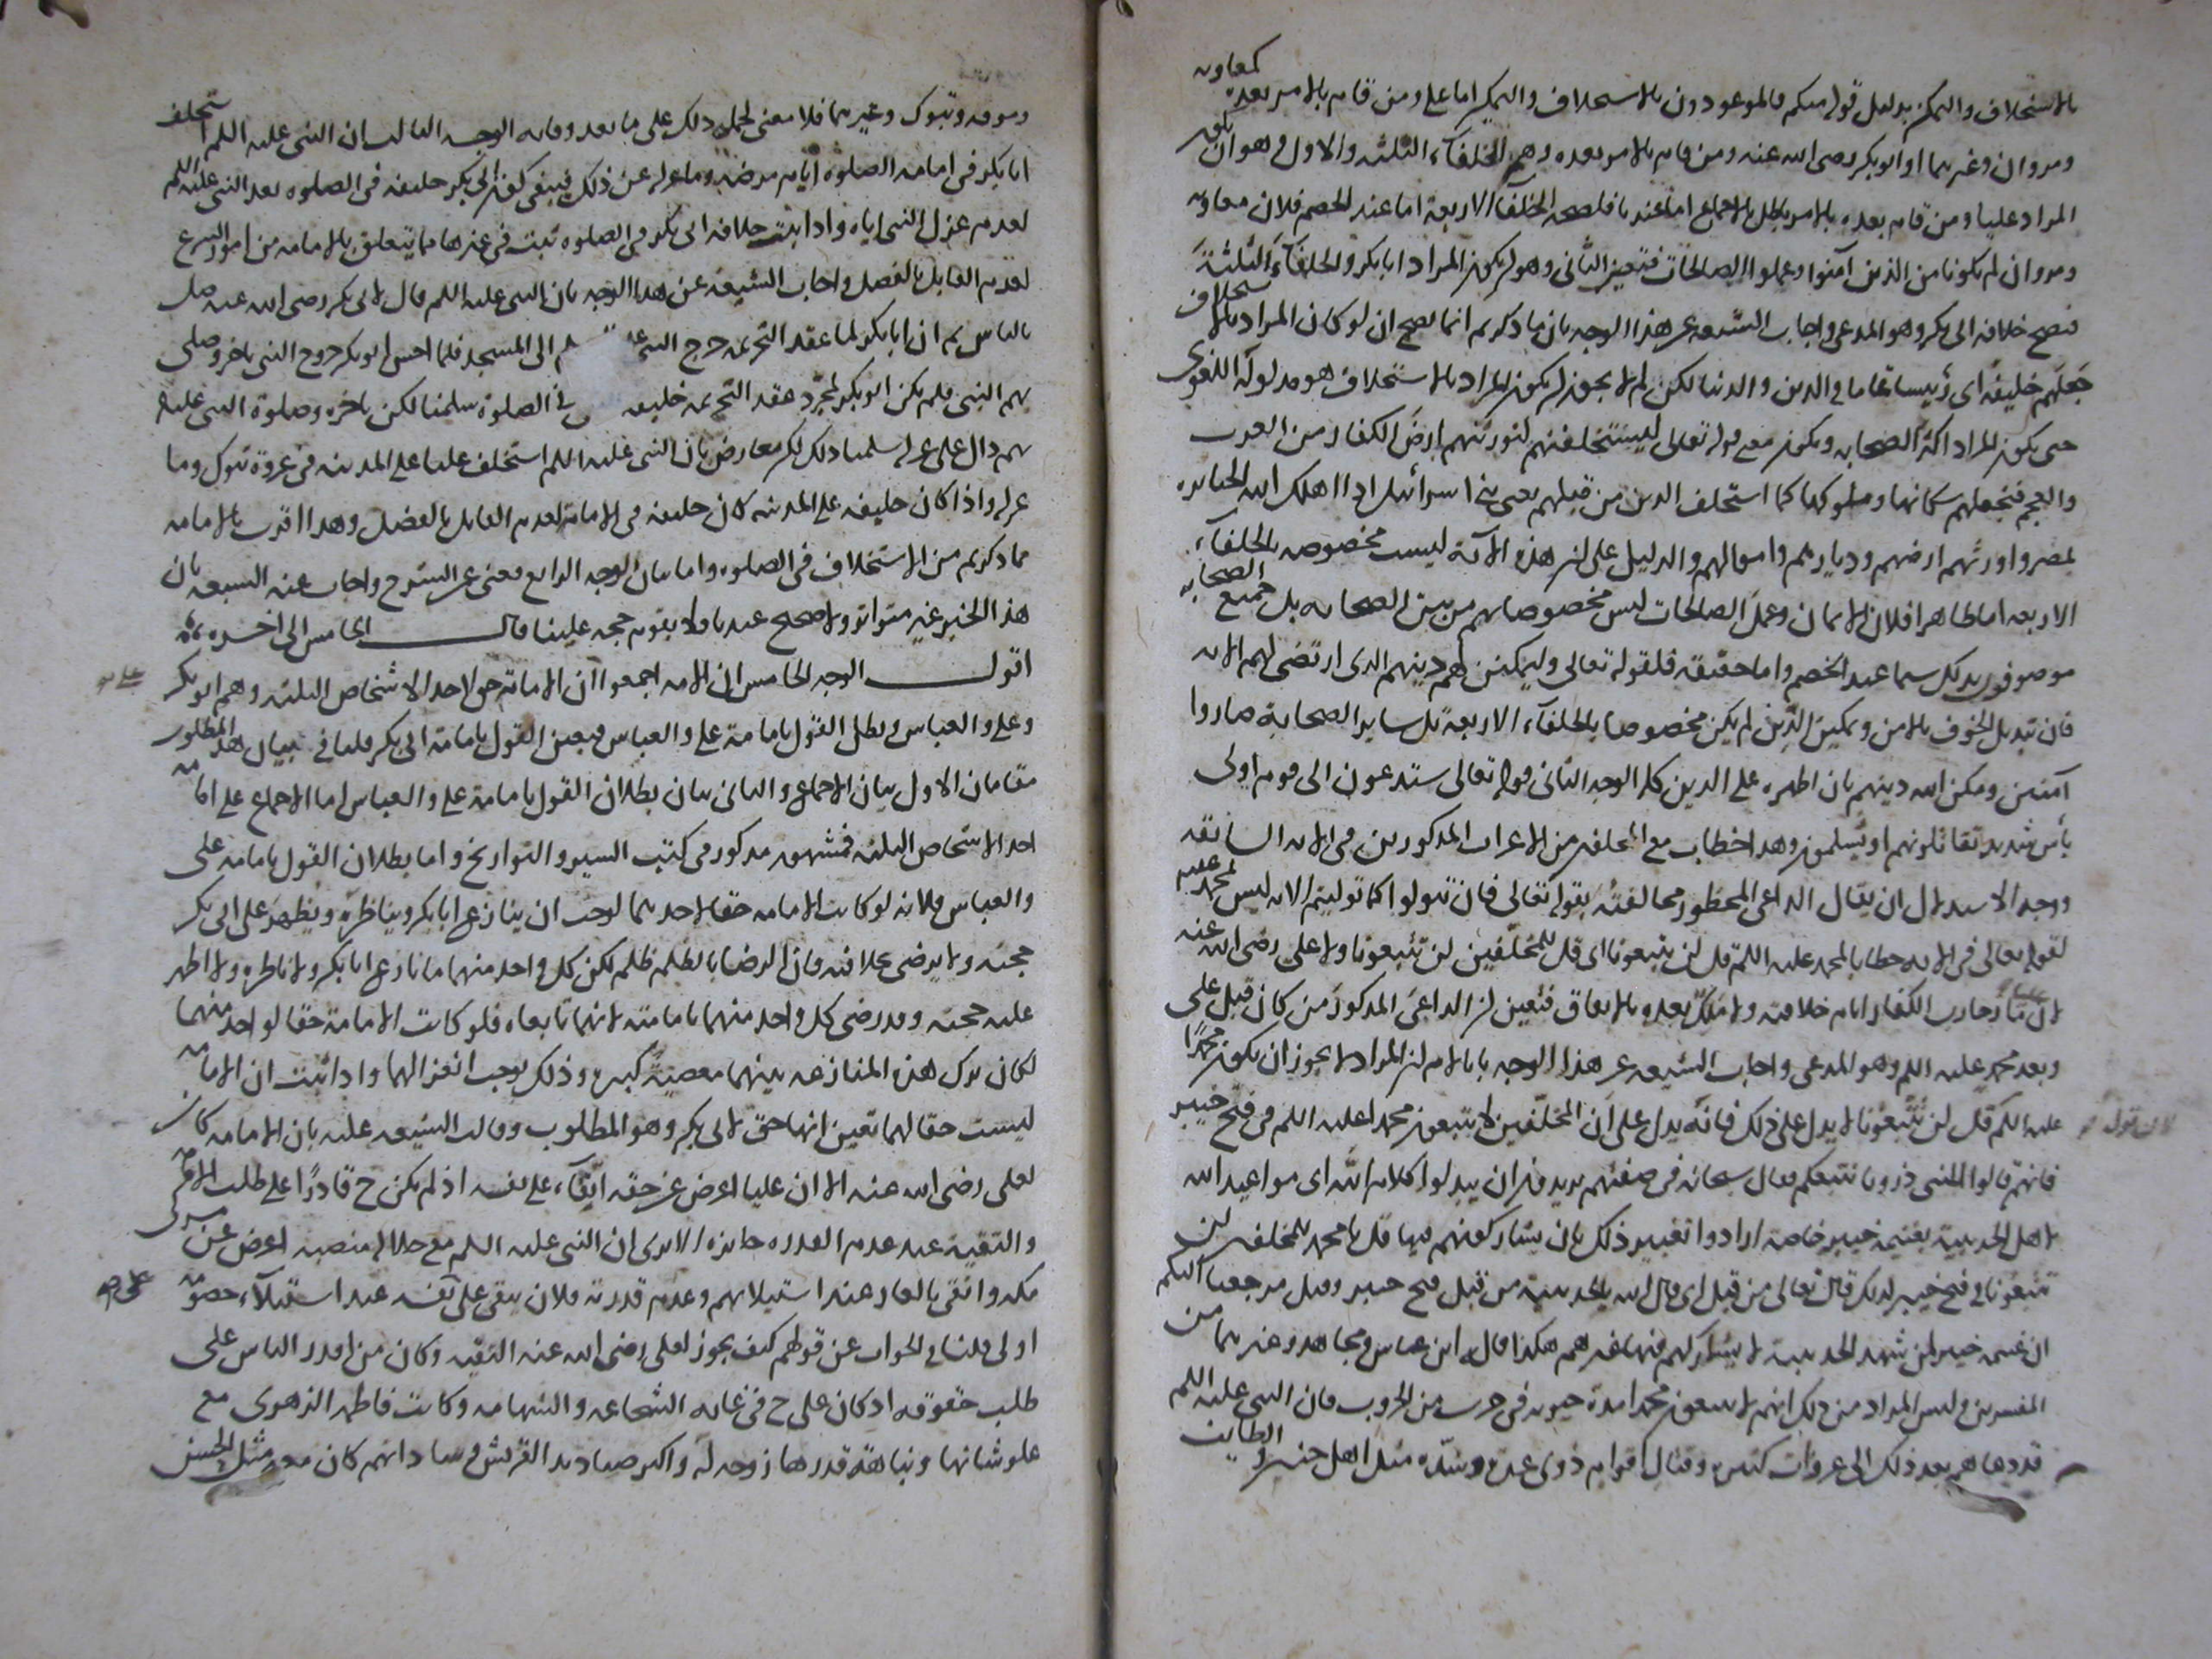 بالاستخلاف والتمكن بدليل قوله منكم فالموعودون بالاستخلاف والتمكن اما علي ومن قام بالامر بعده كمعاويه
ومروان وغيرهما او ابو بكر رضى الله عنه ومن قام بالامر بعده وهم الخلفآء الثلثه والاول وهو ان يكون
المراد عليا ومن قام بعده بالامر باطل بالاجماع اما عندنا فلصحه الخلفآء الاربعة اما عند الخصم فلان معاويه
ومروان لم يكونا من الذين آمنوا وعملوا الصالحات فتعين الثانى وهو ان يكون المراد ابا بكر والخلفآء الثلثة
فتصح خلافه ابى بكر وهو المدعى واجاب الشيعه عن هذا الوجه بان ما ذكرتم انما يصح ان لو كان المراد بالاستخلاف
جعلهم خليفة اى رئيسا عاما فى الدين والدنيا لكن لم لا يجوز ان يكون المراد بالاستخلاف هو مدلوله اللغوى
حتى يكون المراد اكثر الصحابه ويكون معنى قوله تعالى ليستخلفنهم لنورثنهم ارض الكفار من العرب
والعجم فنجعلهم سكانها وملوكها كما استخلف الذين من قبلهم يعنى بنى اسرائيل اذ اهلك الله الجبابره
بمصر واورثهم ارضهم وديارهم واموالهم والدليل على ان هذه الآية ليست مخصوصه بالخلفآء
الاربعه اما ظاهرا فلان الايمان وعمل الصالحات ليس مخصوصا بهم من بين الصحابه بل جميع الصحابه
موصوفون بذلك سيما عند الخصم واما حقيقة فلقوله تعالى وليمكنن لهم دينهم الذى ارتضى لهم الايه
فان تبديل الخوف بالامن وتمكين الدين لم يكن مخصوصا بالخلفآء الاربعة بل ساير الصحابة صاروا
آمنين ومكن الله دينهم بان اظهره على الدين كله الوجه الثانى قوله تعالى ستدعون الى قوم اولى
بأس شديد تقاتلونهم او يسلمون وهذا خطاب مع المخلفين من الاعراب المذكورين فى الايه السابقه
ووجه الاستدلال ان يقال الداعى المحظور مخالفته بقوله تعالى فان تتولوا كما توليتم الايه ليس محمد عليه
لقوله تعالى فى الايه خطابا لمحمد عليه السلم قل لن تتبعونا اى قل للمخلفين لن تتبعونا ولا على رضى الله عنه
لانه ما حارب الكفار ايام خلافته ولا من بعده بالاتفاق فتعين ان الداعى المذكور من كان قبل على
وبعد محمد عليه السلم وهو المدعى واجاب الشيعه عن هذا الوجه بانا لا نسلم ان المراد لا يجوز ان يكون محمدا
عليه السلم قل لن تتبعونا لا يدل على ذلك فانه يدل على ان المخلفين لا يتبعون محمدا عليه السلم فى فتح خيبر
فانهم قالوا للنبى ذرونا نتبعكم فقال سبحانه فى صفتهم يريدون ان يبدلوا كلام الله اى مواعيد الله
لاهل الحديبية بغنيمة خيبر خاصة ارادوا تغيير ذلك بان يشاركونهم فيها قل يا محمد للمخلفين لن
تتبعونا فى فتح خيبر لذلك قال تعالى من قبل اى قال الله بالحديبية من قبل فتح خيبر وقبل مرجعنا اليكم
ان غنيمه خيبر لمن شهد الحديبية لا يشاركهم فيها غيرهم هكذا قال ابن عباس ومجاهد وغيرهما من
المفسرين وليس المراد من ذلك انهم لا يتبعون محمدا مدة حيوته فى حرب من الحروب فان النبى عليه السلم
قد دعاهم بعد ذلك الى غزوات كثيره وقتال اقوام ذوى عدة وشده مثل اهل حنين والطايف
وموته وتبوك وغيرهما فلا معنى لحمل ذلك على ما بعد وفاته الوجه الثالث ان النبى عليه السلم استخلف
ابا بكر فى امامه الصلوة ايام مرضه وما عزله عن ذلك فيبقى كون ابى بكر خليفه فى الصلوه بعد النبى عليه السلم
لعدم عزل النبى اياه واذا ثبت خلافه ابى بكر فى الصلوه ثبت فى غيرها مما يتعلق بالامامه من امور الشرع
لعدم القايل بالفصل واجاب الشيعه عن هذا الوجه بان النبى عليه السلم قال لابى بكر رضى الله عنه صل
بالناس ثم ان ابا بكر لما عقد التحريمه خرج النبى الى المسجد فلما احس ابو بكر خروج النبى تاخر وصلى
بهم النبى فلم يكن ابو بكر لمجرد عقد التحريمه خليفه فى الصلوة سلمنا لكن تاخره وصلوة النبى عليه
بهم دال على عزله سلمنا ذلك لكن معارض بان النبى عليه السلم استخلف عليا على المدينه فى غزوة تبوك وما
عزله واذا كان خليفه على المدينه كان خليفه فى الامامة لعدم القايل بالفصل وهذا اقرب بالامامه
مما ذكرتم من الاستخلاف فى الصلوه واما بيان الوجه الرابع فغنى عن الشرح واجاب عنه الشيعه بان
هذا الخبر غير متواتر ولا صحيح عندنا فلا يقوم حجه علينا قال الخامس الى اخره
اقول الوجه الخامس ان الامه اجمعوا ان الامامة حق لاحد الاشخاص الثلثه وهم ابو بكر
وعلى والعباس وبطل القول بامامة على والعباس فيعين القول بامامة ابى بكر فلنا فى بيان هذا المطلوب
مقامان الاول بيان الاجماع والثانى بيان بطلان القول بامامة على والعباس اما الاجماع على امامه
احد الاشخاص الثلثه فمشهور مذكور فى كتب السير والتواريخ واما بطلان القول بامامه على
والعباس فلانه لو كانت الامامه حقا لاحدهما لوجب ان ينازع ابا بكر ويناظره ويظهر على ابى بكر
حجته ولا يرضى بخلافته فان الرضا بالظلم ظلم لكن كل واحد منهما ما نازع ابا بكر ولا ناظره ولا اظهر
عليه حجته وقد رضى كل واحد منهما بامامته لانهما تابعاه فلو كانت الامامة حقا لواحد منهما
لكان ترك هذه المنازعه بينهما معصية كبيره وذلك يوجب انعزالهما واذا ثبت ان الامامه
ليست حقا لهما تعين انها حق لابى بكر وهو المطلوب وقالت الشيعه عليه بان الامامه كانت
لعلى رضى الله عنه الا ان عليا اعرض عن حقه اتقآء على نفسه اذ لم يكن ح قادرا على طلب الامر
والتقية عند عدم القدره جايزه الا يرى ان النبى عليه السلم مع جلاله منصبه اعرض عن
مكه واتقى بالغار عند استيلائهم وعدم قدرته فلان يتقى على نفسه عند استيلآء خصومه
اولى قلنا فى الجواب عن قولهم كيف يجوز لعلى رضى الله عنه التقيه وكان من اقدر الناس على
طلب حقوقه اذ كان على ح فى غايه الشجاعه والشهامه وكانت فاطمه الزهرى مع
علو شانها ونباهة قدرها زوجه له واكبر صناديد القريش وساداتهم كان معه مثل الحسن